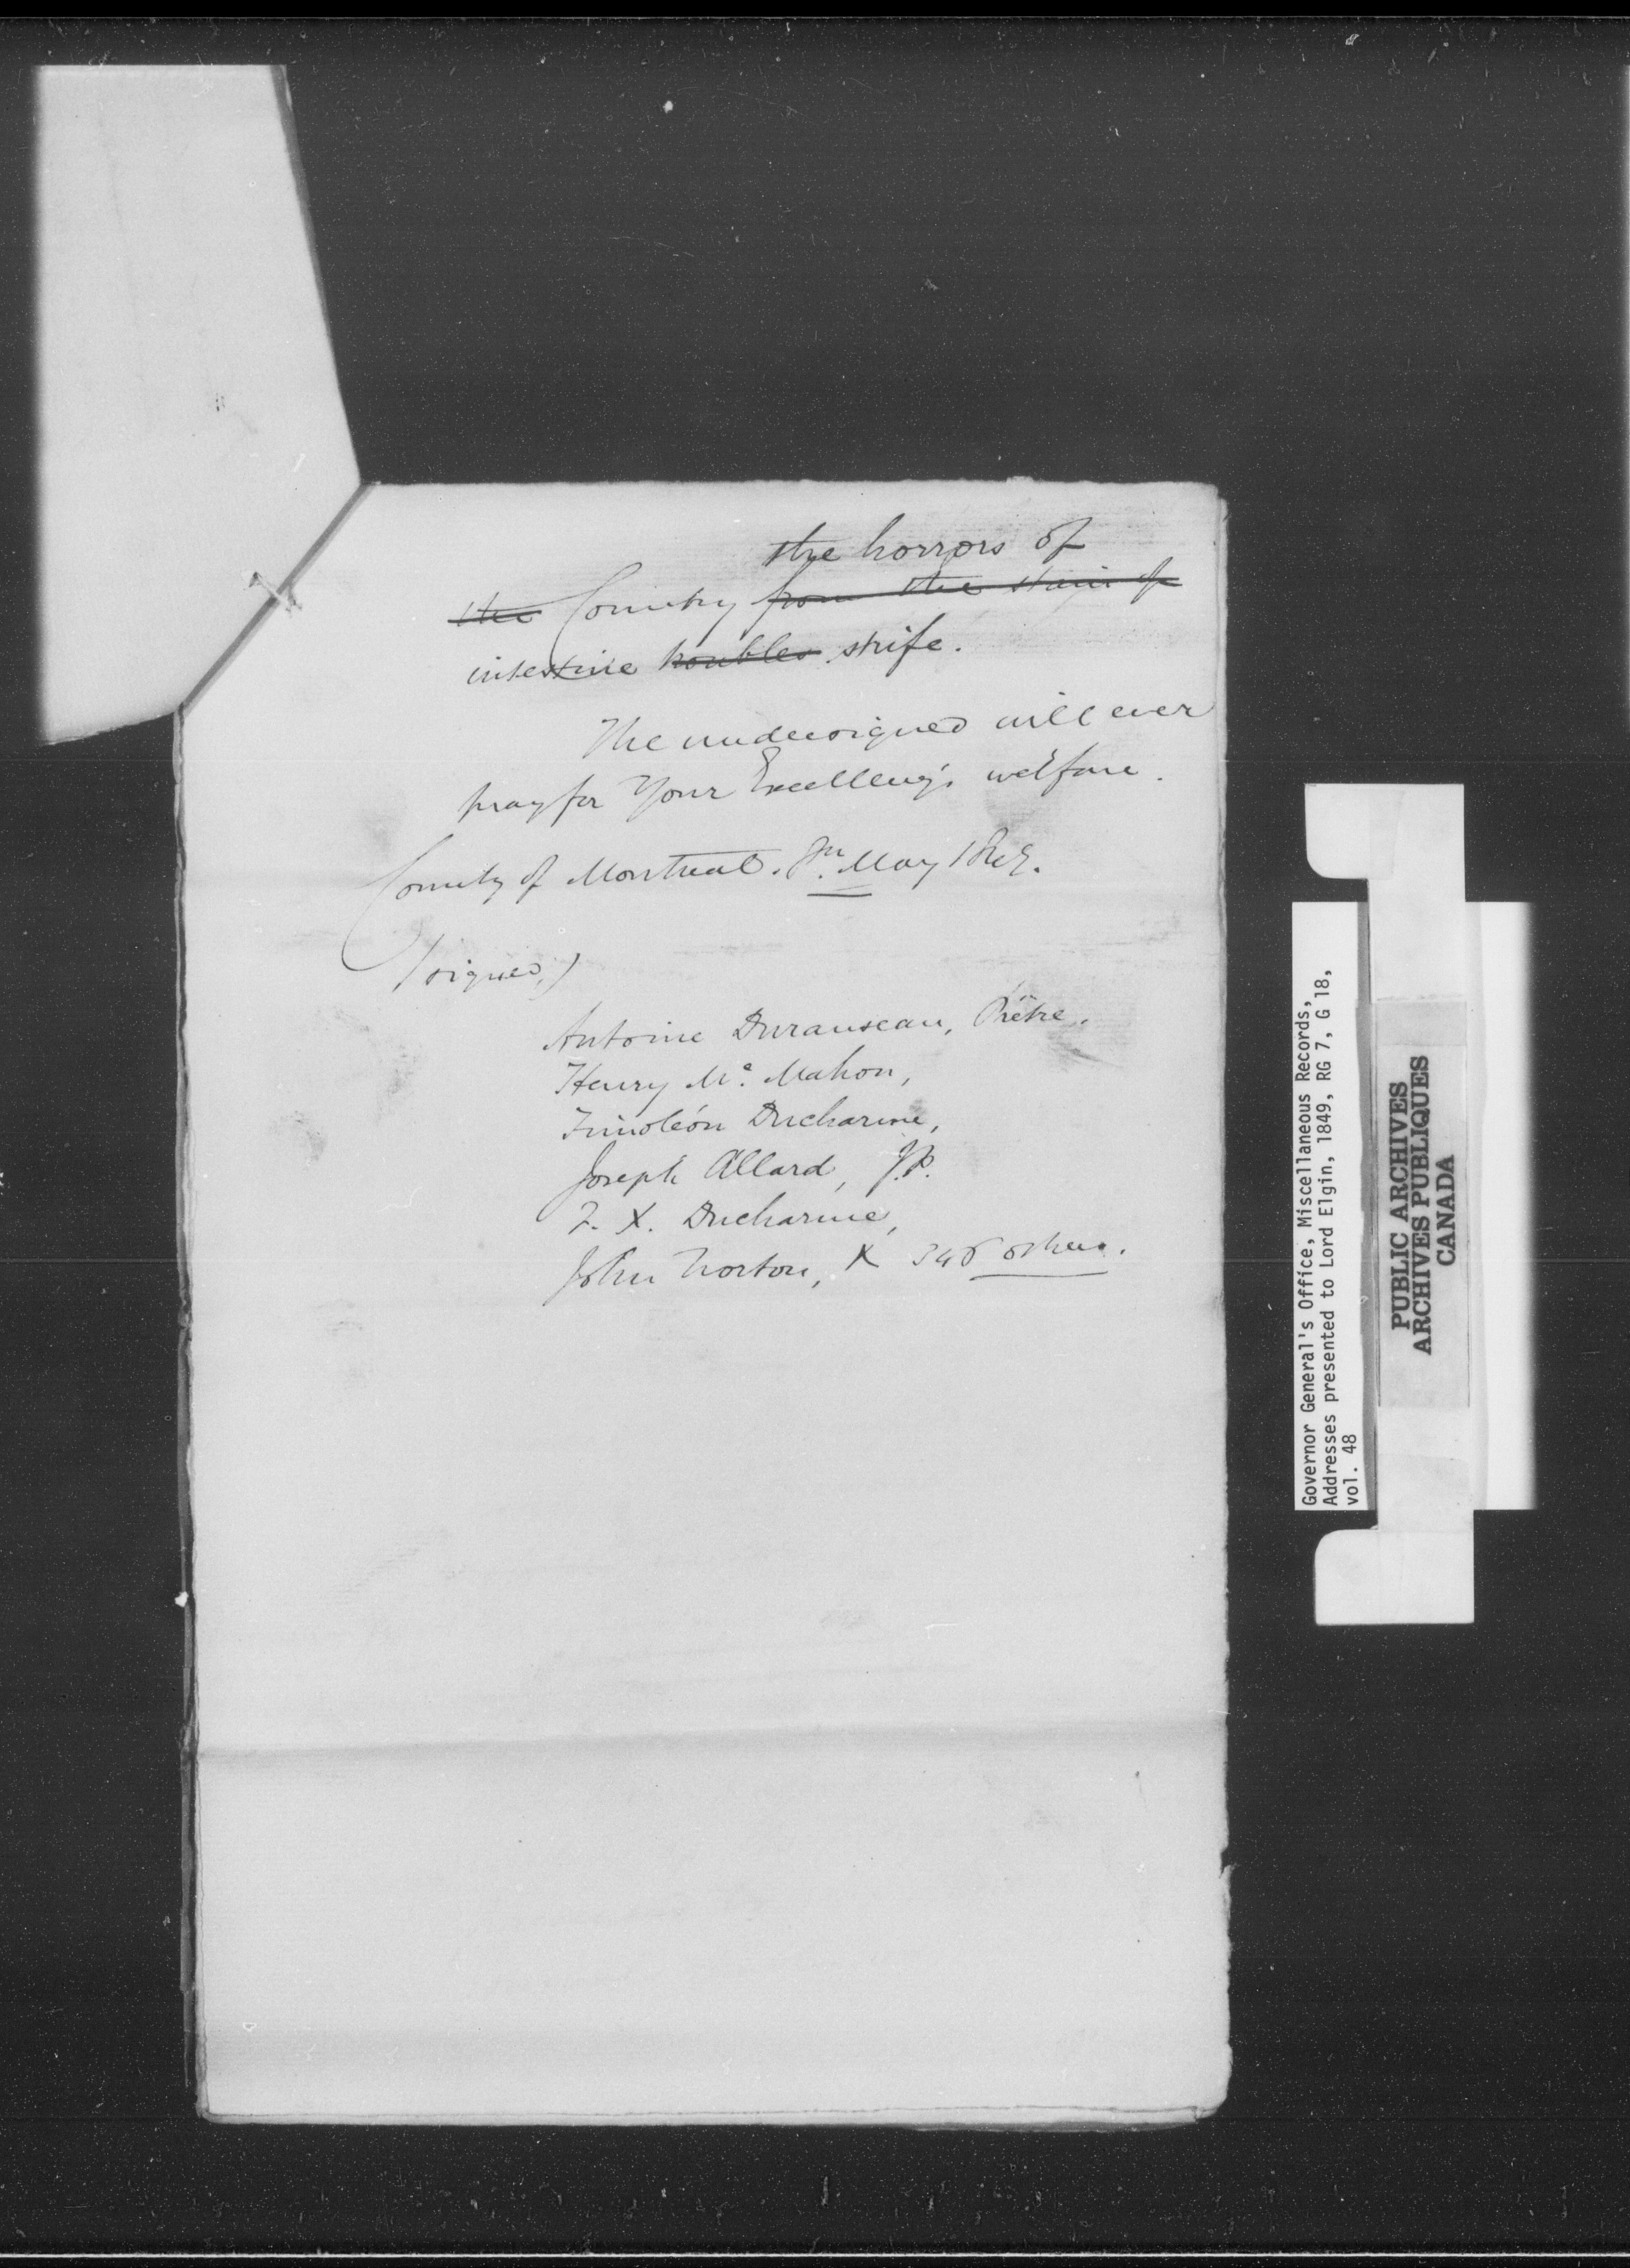 the horrors of
the Country from the stain of
intestine troubles strife.
The undersigned will ever
pray for Your Excellency's welfare.
County of Montreal. May 1849.
(signed,)
Antoine Duranseau, Prêtre.
Henry Mc. Mahon,
Timoléon Ducharme,
Joseph Allard, J.P.
F. X. Ducharme,
John Norton, & 346 others.
Governor General's Office, Miscellaneous Records,
Addresses presented to Lord Elgin, 1849, RG 7, G 18,
vol. 48
PUBLIC ARCHIVES
ARCHIVES PUBLIQUES
CANADA